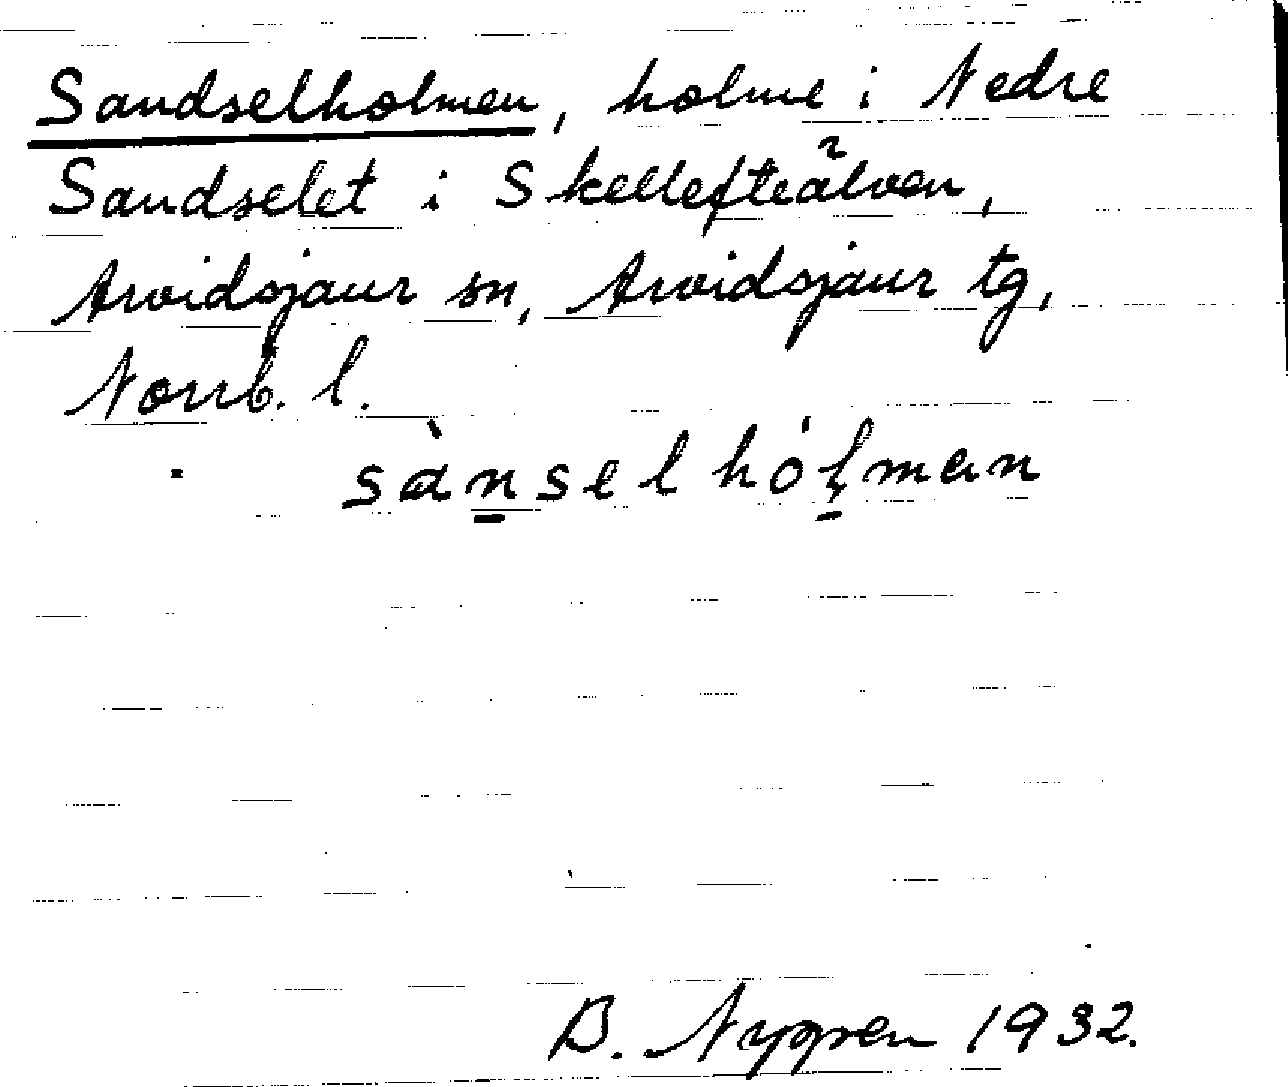 Sandselholmen, holme i Nedre
Sandselet i Skellefteälven,
Arvidsjaur sn, Arvidsjaur tg,
Norrb. l.
sàn̲selhól̲man
B. 1932.